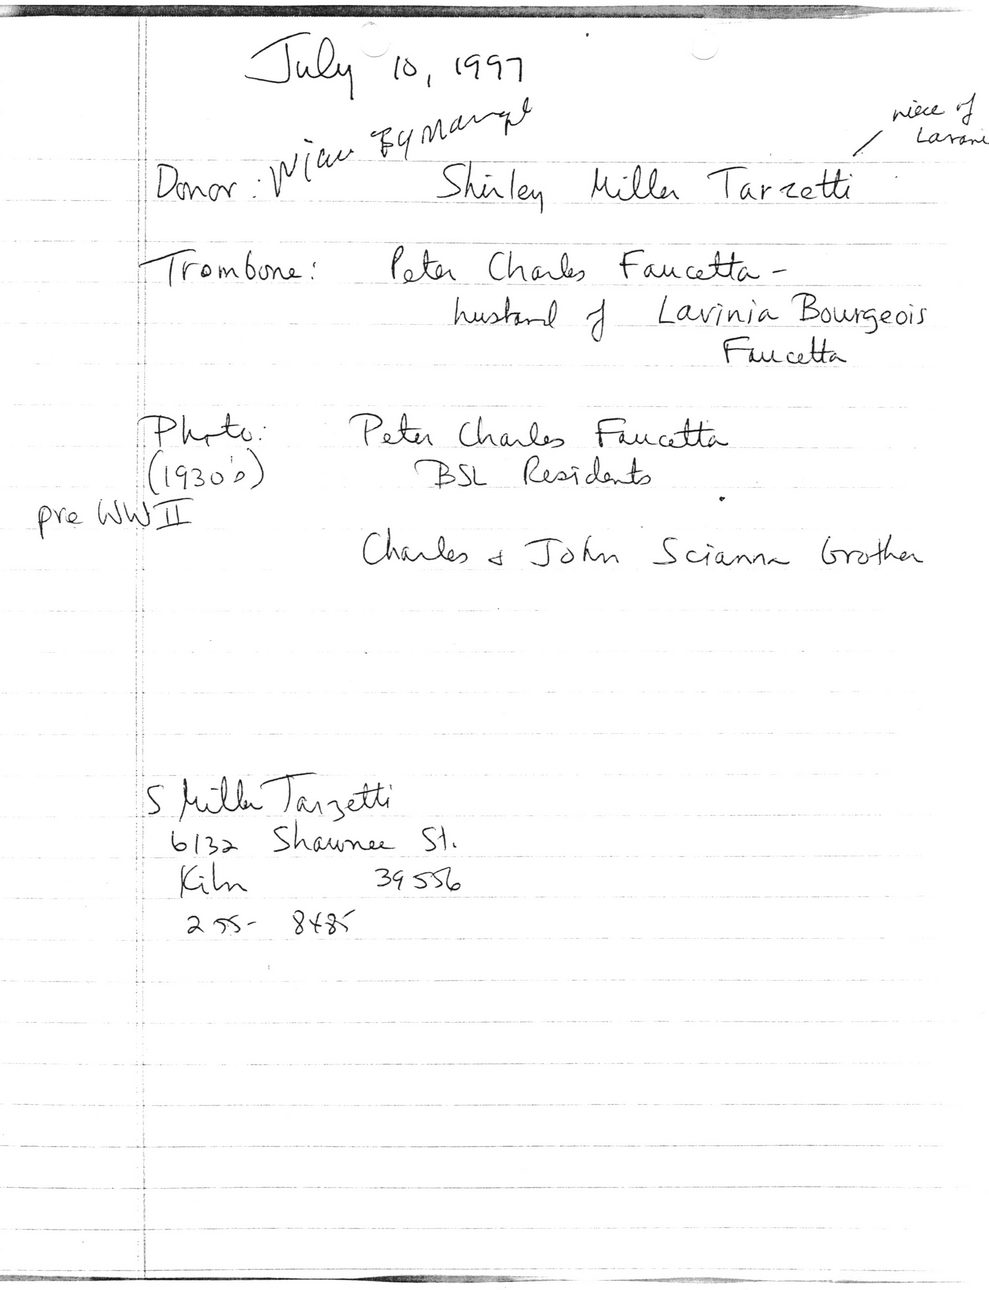 July 10, 1997
niece of
Donor: Niece By Marriage Shirley Miller Tarzetti
Trombone: Peter Charles Faucetta -
husband of Lavinia Bourgeois
Faucetta
Photo: Peter Charles Faucetta
(1930's) BSL Residents
pre WW II
Charles & John Scianna brother
S Miller Tarzetti
6132 Shawnee St.
Kiln 39556
255- 8485